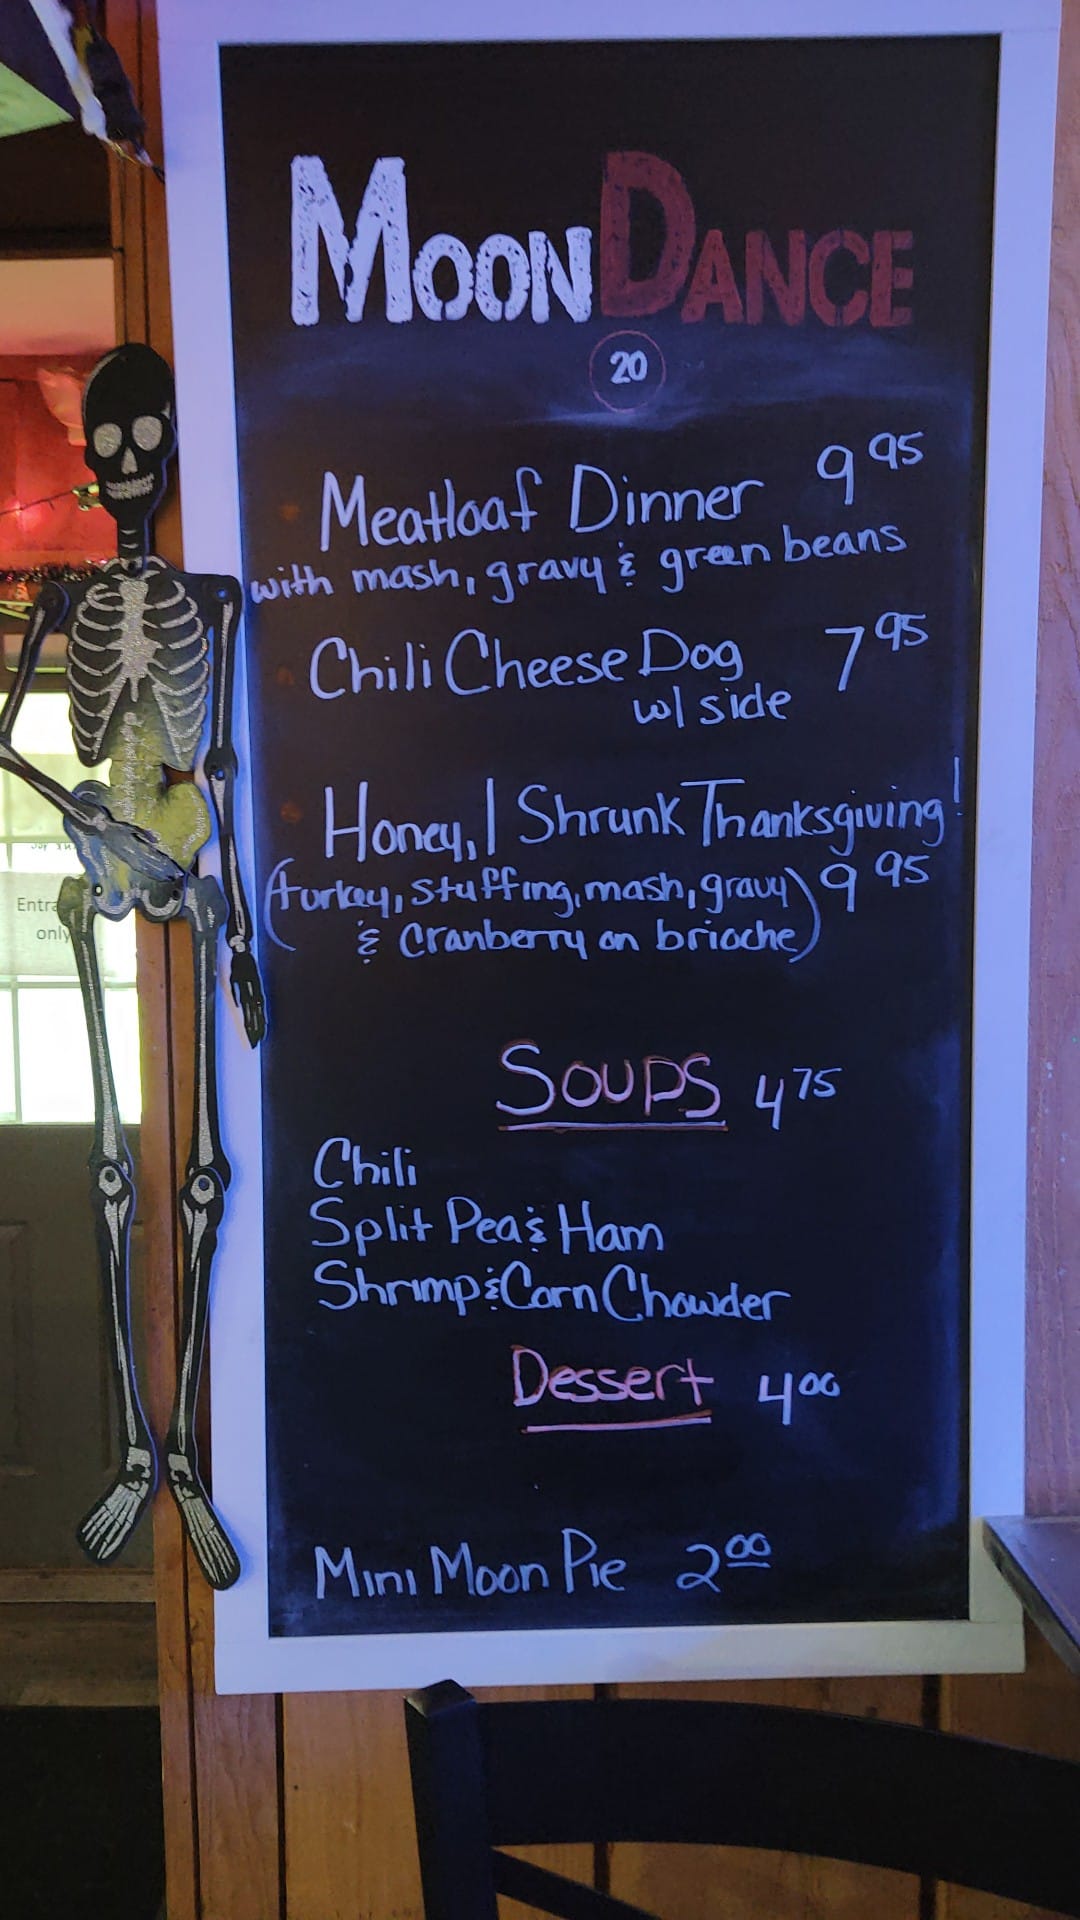 MOONDANCE
20
Meatloaf Dinner 9 95
with mash, gravy & green beans
Chili Cheese Dog 7 95
w/ side
Honey, I Shrunk Thanksgiving!
(turkey, stuffing, mash, gravy 9 95
& cranberry on brioche)
SOUPS 4 75
Chili
Split Pea & Ham
Shrimp & Corn Chowder
Dessert 4 00
Mini Moon Pie 2 00
only